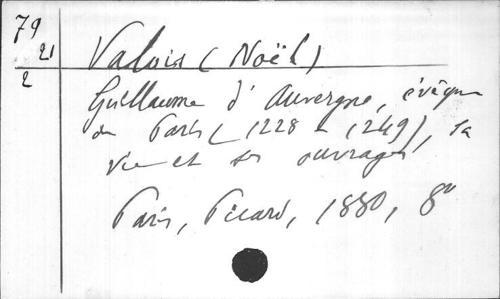 79
21
2
Valois (Noël)
Guillaume d'Auvergne, évêque
de Paris (1228-1249), sa
vie et ses ouvrages
Paris, Picard, 1880, 8º